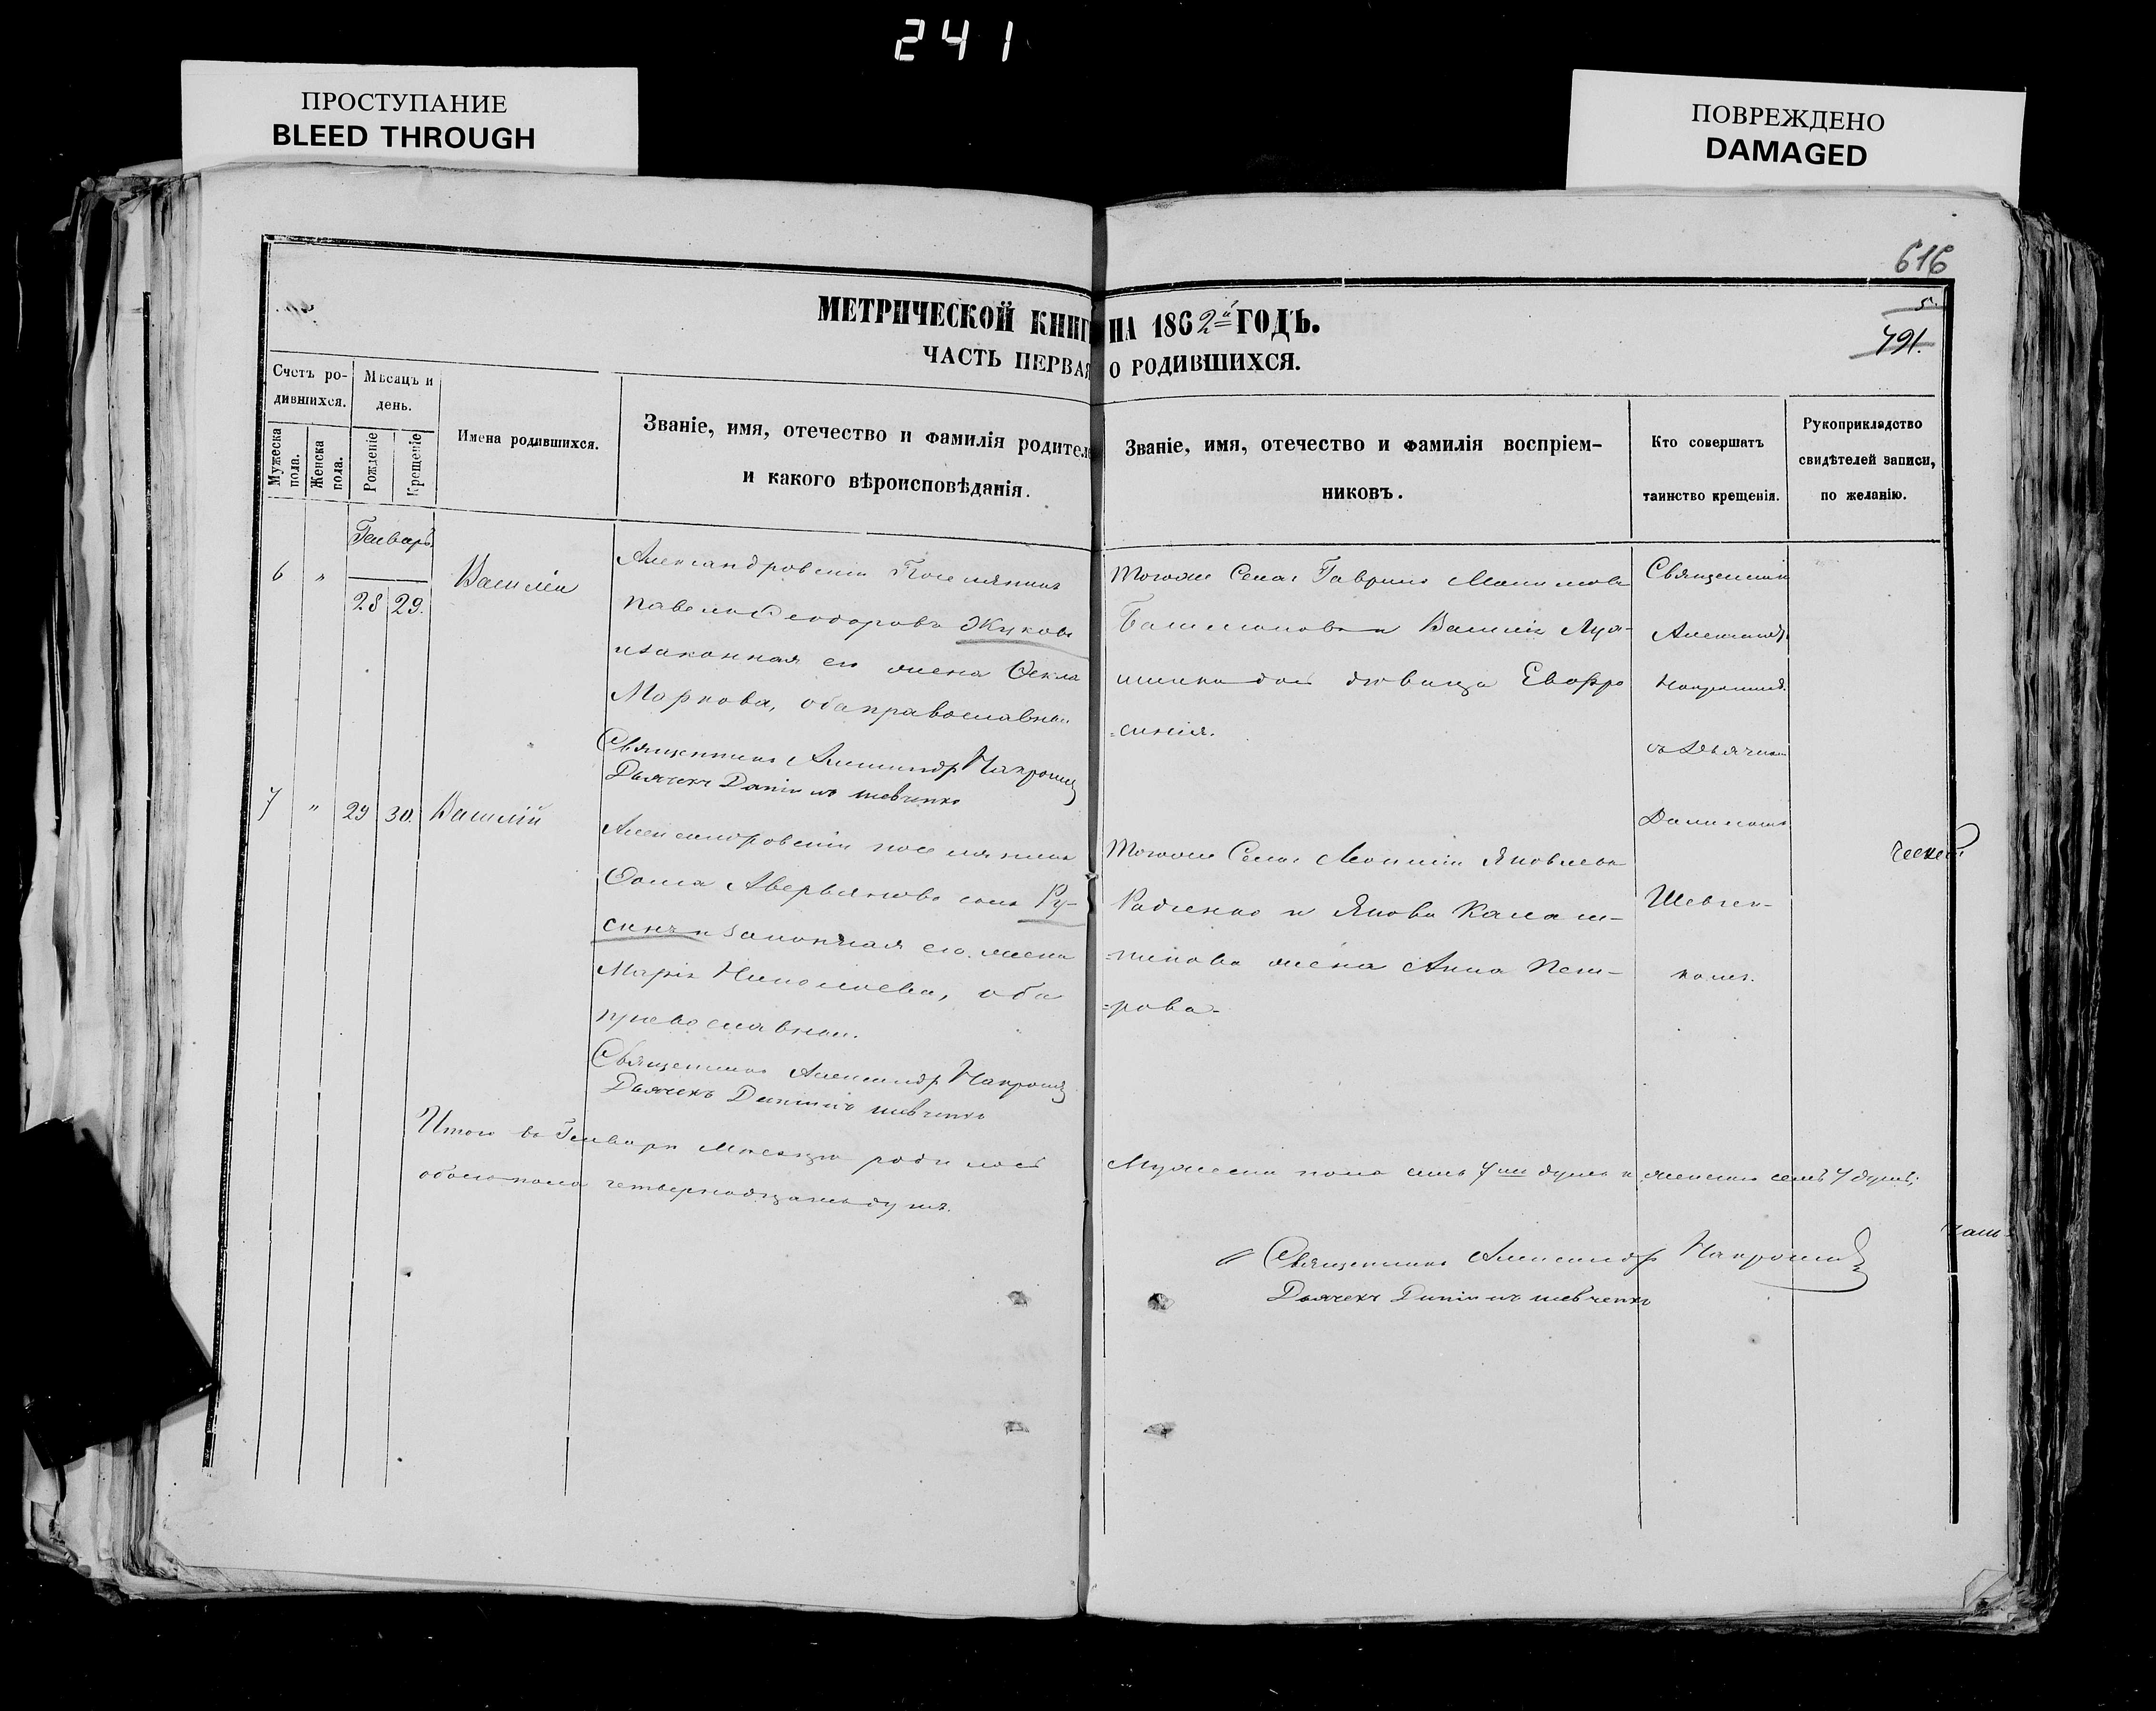 241
ПРОСТУПАНИЕ
BLEED THROUGH
ПОВРЕЖДЕНО
DAMAGED
616
5.
491.
МЕТРИЧЕСКОЙ КНИГ НА 1862й ГОДЪ.
ЧАСТЬ ПЕРВАЯ О РОДИВШИХСЯ.
Счетъ ро-
дившихся.
Мужеска
пола.
Женска
пола.
Мѣсяцъ и
день.
Рожденіе
Крещеніе
Имена родившихся.
Званіе, имя, отечество и фамилія родителе
и какого вѣроисповѣданія.
Званіе, имя, отечество и фамилія воспріем-
никовъ.
Кто совершатъ
таинство крещенія.
Рукоприкладство
свидѣтелей записи,
по желанію.
Генварь
6 " 28 29. Василій
Александровскій Поселянинъ
Павелъ Ѳеодоровъ Жуковъ
и законная его жена Ѳекла
Маркова, оба православныи
Священникъ Александр
Дьячекъ Даніилъ Шевченко
Тогоже Села: Гаврило
и Василія Луа-
дѣвица Евфро
=синія.
Священник
Александр
съ Дьячком
Даниломъ
Шевчен-
комъ.
7 " 29 30. Василій
Александровскій поселянинъ
Ѳома Аверьяновъ сынъ Ру-
синъ и Законная его жена
Марія Николаева, оба
православныи.
Священникъ Александр
Дьячекъ Даніилъ Шевченко
Тогоже Села: Яковлевъ
Радченко и Якова Калаш-
=никова жена Анна Пет-
=рова.
Итого въ Генварѣ Мѣсяцѣ родилось
обоего пола четырнадцать душъ.
Мужеска пола семь 7мь душъ и женска семь 7 душъ;
Священникъ Александр
Дьячекъ Даніилъ Шевченко